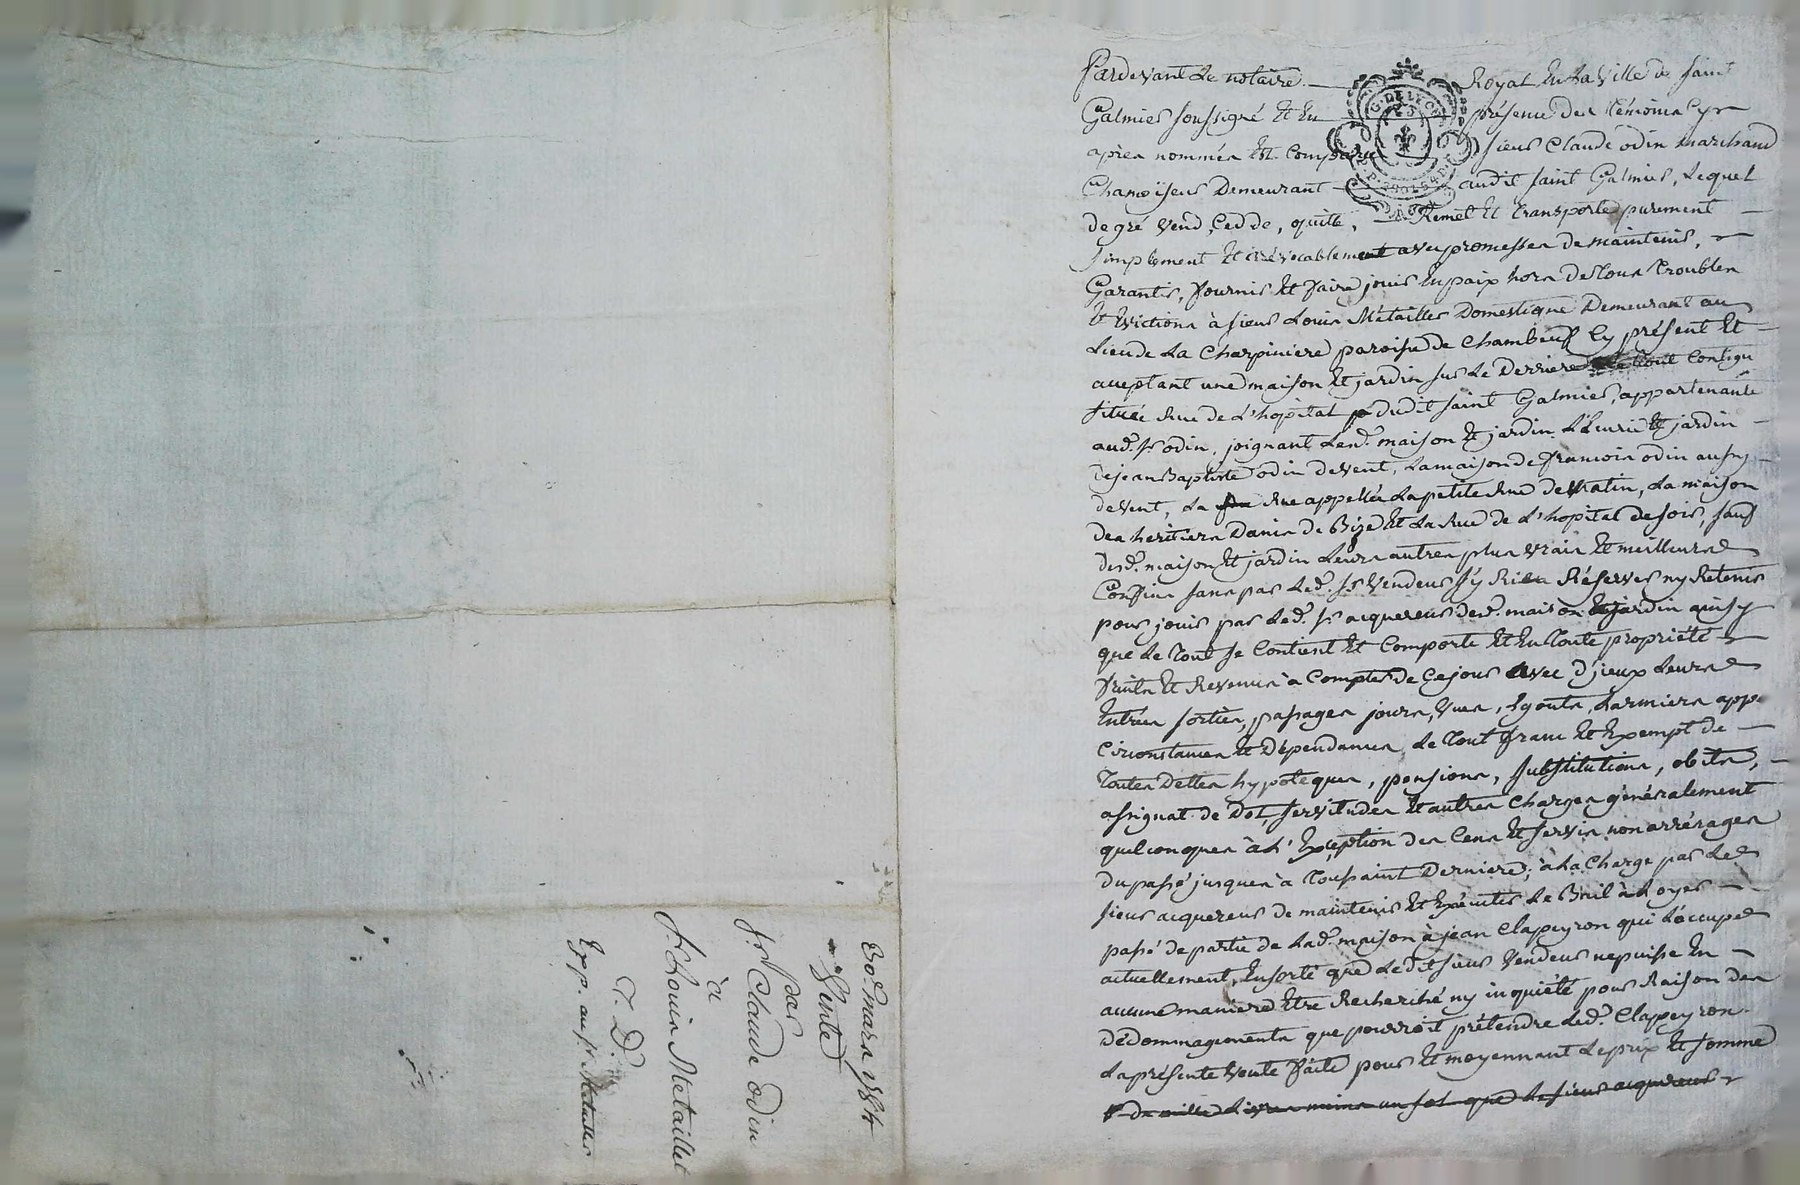 Pardevant Le notaire Royal En La Ville de saint
Galmier soussigné Et En présence des Témoins Cy
après nommés Est Comparu sieur Claude odin Marchand
Chamoiseur Demeurant audit saint Galmier, Lequel
de gré vend, Cedde, quitte, Remet Et transporte purement
simplement Et irrévocablement avec promesses de maintenir,
Garantir, fournir Et faire jouir En paix hors de Tous Troubles
Et Evictions à sieur Louis Métailler Domestique Demeurant au
Lieu de La Charpiniere paroisse de Chambœuf Cy présent Et
acceptant une maison Et jardin sur Le Derriere Le Tout Contigu
située Rue de L'hôpital dudit saint Galmier, appartenante
aud. sr odin, joignant Lesd. maison Et jardin L'Ecurie Et jardin
de jean Baptiste odin de vent, La maison de francois odin aussy
de vent, La Rue appellée La petite Rue de Matin, La maison
des heritiers Danis de Bize Et La Rue de L'hopital de soir, sauf
desd. maison Et jardin Leurs autres plus vrais Et meilleurs
Confins sans par Led. sr Vendeur s'y Rien Réserver ny Retenir
pour jouir par Led. sr acquereur desd. maison Et jardin ainsy
que Le Tout se Contient Et Comporte Et En Toute propriété
fruits Et Revenus à Compter de Ce jour avec d'jeux Leurs
Entrées sorties, passages jours, Vues, Egouts, Larmiers app.
Circonstances Et Dépendances, Le Tout franc Et Exempt de
Toutes Dettes hypoteques, pensions, substitutions, obits,
assignat de Dot, servitudes Et autres Charges généralement
quelconques à L'Exception des Cens Et servis non arréragés
du passé jusques à Toussaint Derniere; à La Charge par Led.
sieur acquereur de maintenir Et Exécuter Le Bail à Loyer
passé de partie de Lad. maison à jean Clapeyron qui L'occupe
actuellement, Ensorte que Ledit sieur Vendeur ne puisse En
aucune maniere Etre Recherché ny inquiété pour Raison des
dédommagements que pourroit prétendre Led. Clapeyron.
La présente Vente faite pour Et moyennant Le prix Et somme
de mille Livres moins un sol que Le sieur acquereur
30e mars 1784
Vente
par
sr Claude odin
à
sr Louis Metailler
Exp. au sr Metailler